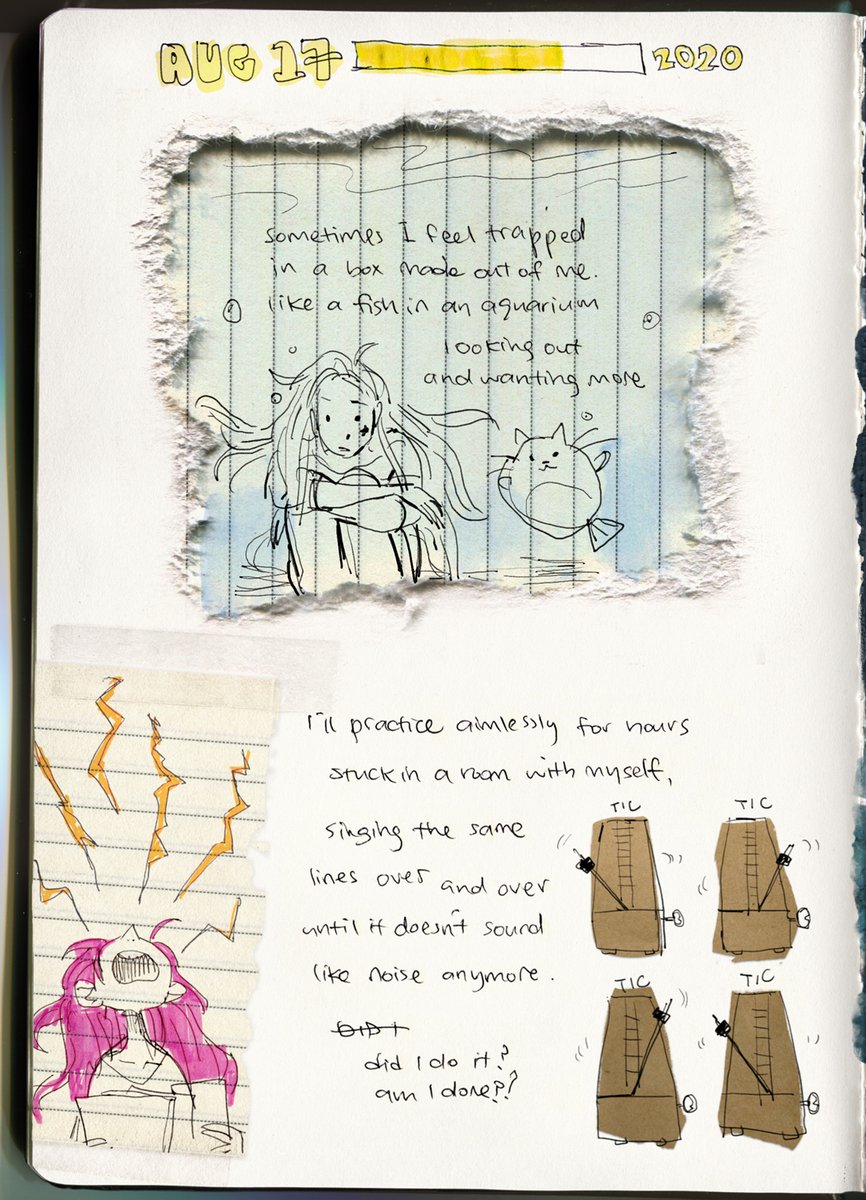 AUG 17 2020
sometimes I feel trapped
in a box made out of me.
like a fish in an aquarium
looking out
and wanting more
I'll practice aimlessly for hours
stuck in a room with myself,
singing the same
lines over and over
until it doesn't sound
like noise anymore.
DID I
did I do it?
am I done?!
TIC TIC
TIC TIC